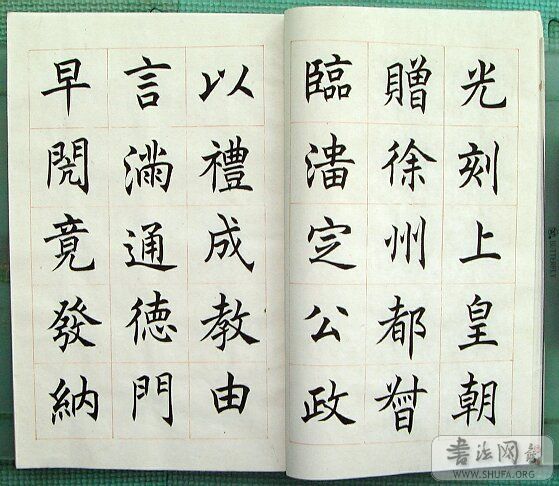 光刻上皇朝
贈徐州都督
臨淄㝎公政
以禮成教由
言滿通德門
早閲竟發納
書法网
WWW.SHUFA.ORG